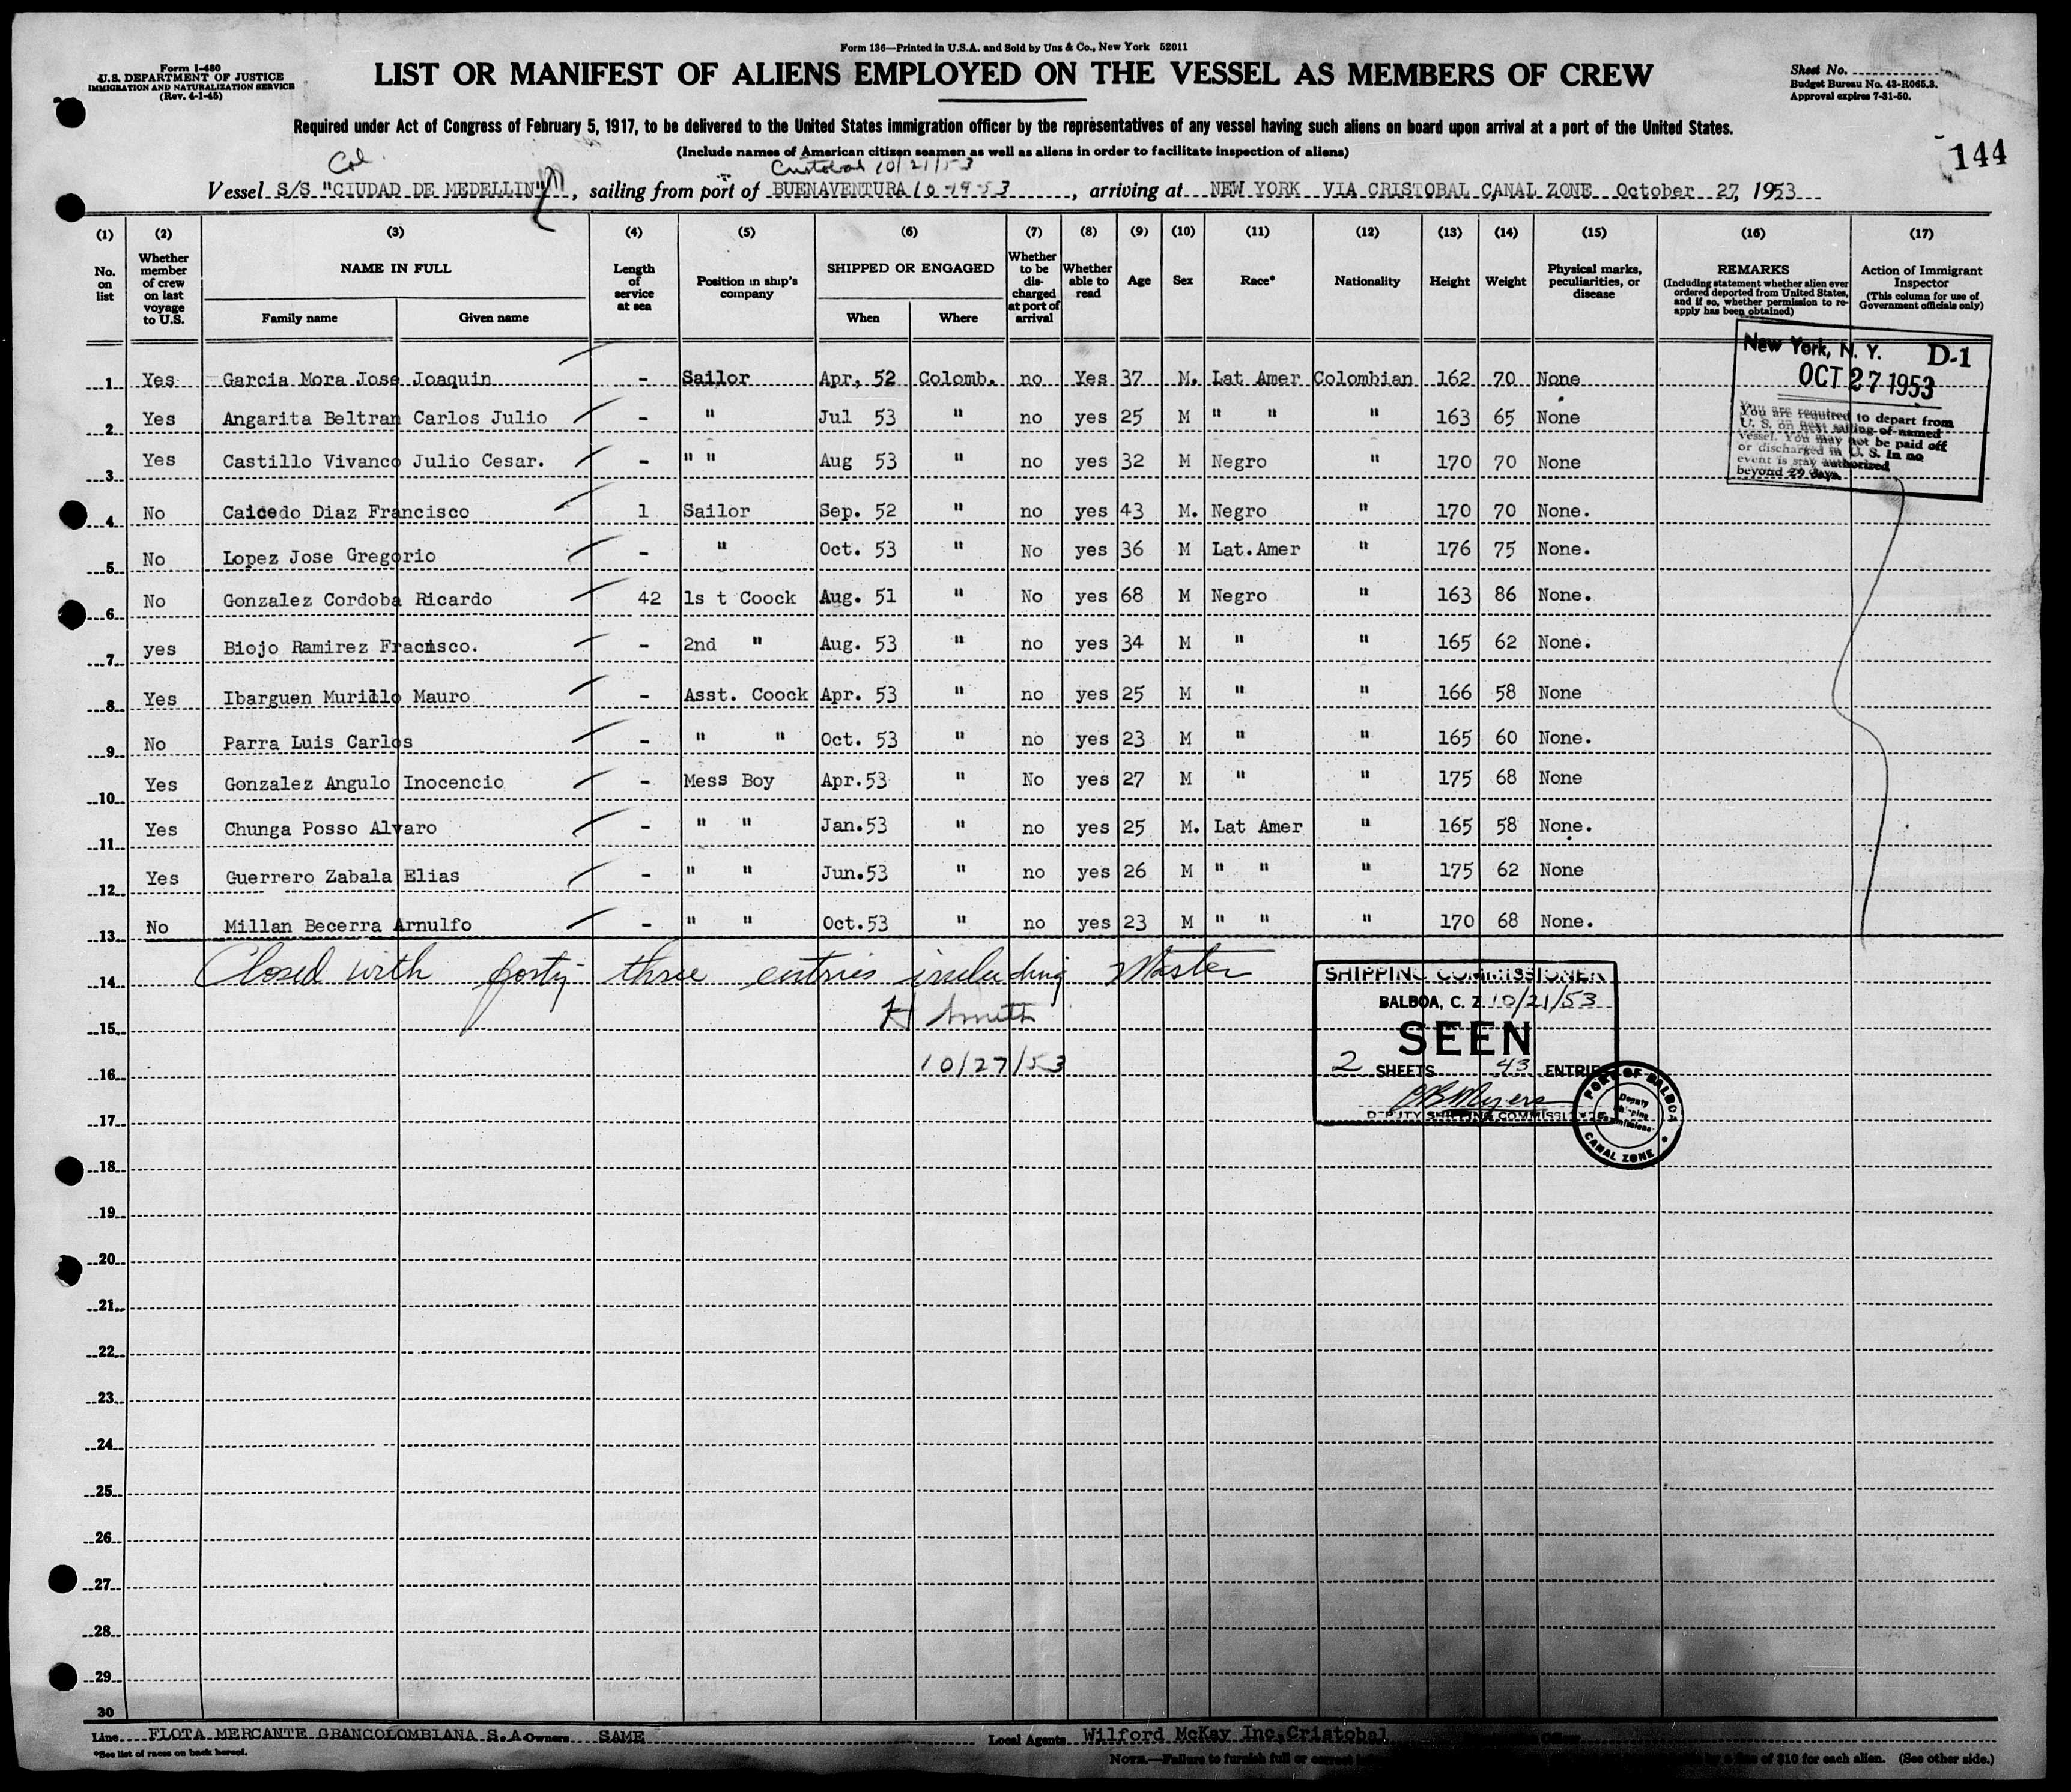 Form 136—Printed in U.S.A. and Sold by Unz & Co., New York 52011
Form I-480
U.S. DEPARTMENT OF JUSTICE
IMMIGRATION AND NATURALIZATION SERVICE
(Rev. 4-1-45)
LIST OR MANIFEST OF ALIENS EMPLOYED ON THE VESSEL AS MEMBERS OF CREW
Sheet No.
Budget Bureau No. 43-R065.3.
Approval expires 7-31-50.
Required under Act of Congress of February 5, 1917, to be delivered to the United States immigration officer by the representatives of any vessel having such aliens on board upon arrival at a port of the United States.
(Include names of American citizen seamen as well as aliens in order to facilitate inspection of aliens)
144
Col. Cristobal 10/21/53
Vessel S/S "CIUDAD DE MEDELLIN", sailing from port of BUENAVENTURA 10-19-53, arriving at NEW YORK VIA CRISTOBAL CANAL ZONE October 27, 1953
(1) (2) (3) (4) (5) (6) (7) (8) (9) (10) (11) (12) (13) (14) (15) (16) (17)
No. on list
Whether member of crew on last voyage to U.S.
NAME IN FULL
Family name Given name
Length of service at sea
Position in ship's company
SHIPPED OR ENGAGED
When Where
Whether to be discharged at port of arrival
Whether able to read
Age
Sex
Race*
Nationality
Height
Weight
Physical marks, peculiarities, or disease
REMARKS
(Including statement whether alien ever ordered deported from United States, and if so, whether permission to re-apply has been obtained)
Action of Immigrant Inspector
(This column for use of Government officials only)
New York, N. Y. D-1
OCT 27 1953
You are required to depart from
U. S. on next sailing of named
vessel. You may not be paid off
or discharged in U. S. In no
event is stay authorized
beyond 29 days.
1 Yes Garcia Mora Jose Joaquin - Sailor Apr, 52 Colomb. no Yes 37 M. Lat Amer Colombian 162 70 None
2 Yes Angarita Beltran Carlos Julio - " Jul 53 " no yes 25 M " " " 163 65 None
3 Yes Castillo Vivanco Julio Cesar. - " " Aug 53 " no yes 32 M Negro " 170 70 None
4 No Caicedo Diaz Francisco 1 Sailor Sep. 52 " no yes 43 M. Negro " 170 70 None.
5 No Lopez Jose Gregorio - " Oct. 53 " No yes 36 M Lat.Amer " 176 75 None.
6 No Gonzalez Cordoba Ricardo 42 1s t Coock Aug. 51 " No yes 68 M Negro " 163 86 None.
7 yes Biojo Ramirez Fracnisco. - 2nd " Aug. 53 " no yes 34 M " " 165 62 None.
8 Yes Ibarguen Murillo Mauro - Asst. Coock Apr. 53 " no yes 25 M " " 166 58 None
9 No Parra Luis Carlos - " " Oct. 53 " no yes 23 M " " 165 60 None.
10 Yes Gonzalez Angulo Inocencio - Mess Boy Apr.53 " No yes 27 M " " 175 68 None
11 Yes Chunga Posso Alvaro - " " Jan.53 " no yes 25 M. Lat Amer " 165 58 None.
12 Yes Guerrero Zabala Elias - " " Jun.53 " no yes 26 M " " " 175 62 None
13 No Millan Becerra Arnulfo - " " Oct.53 " no yes 23 M " " " 170 68 None.
14 Closed with forty three entries including Master
15 H Smith
16 10/27/53
SHIPPING COMMISSIONER
BALBOA, C. Z. 10/21/53
SEEN
2 SHEETS 43 ENTRIES
Myers
DEPUTY SHIPPING COMMISSIONER
PORT OF BALBOA
Deputy Shipping Commissioner
CANAL ZONE
17
18
19
20
21
22
23
24
25
26
27
28
29
30
Line FLOTA MERCANTE GRANCOLOMBIANA S.A Owners SAME Local Agents Wilford McKay Inc,Cristobal
*See list of races on back hereof.
NOTE.—Failure to furnish full or correct of $10 for each alien. (See other side.)